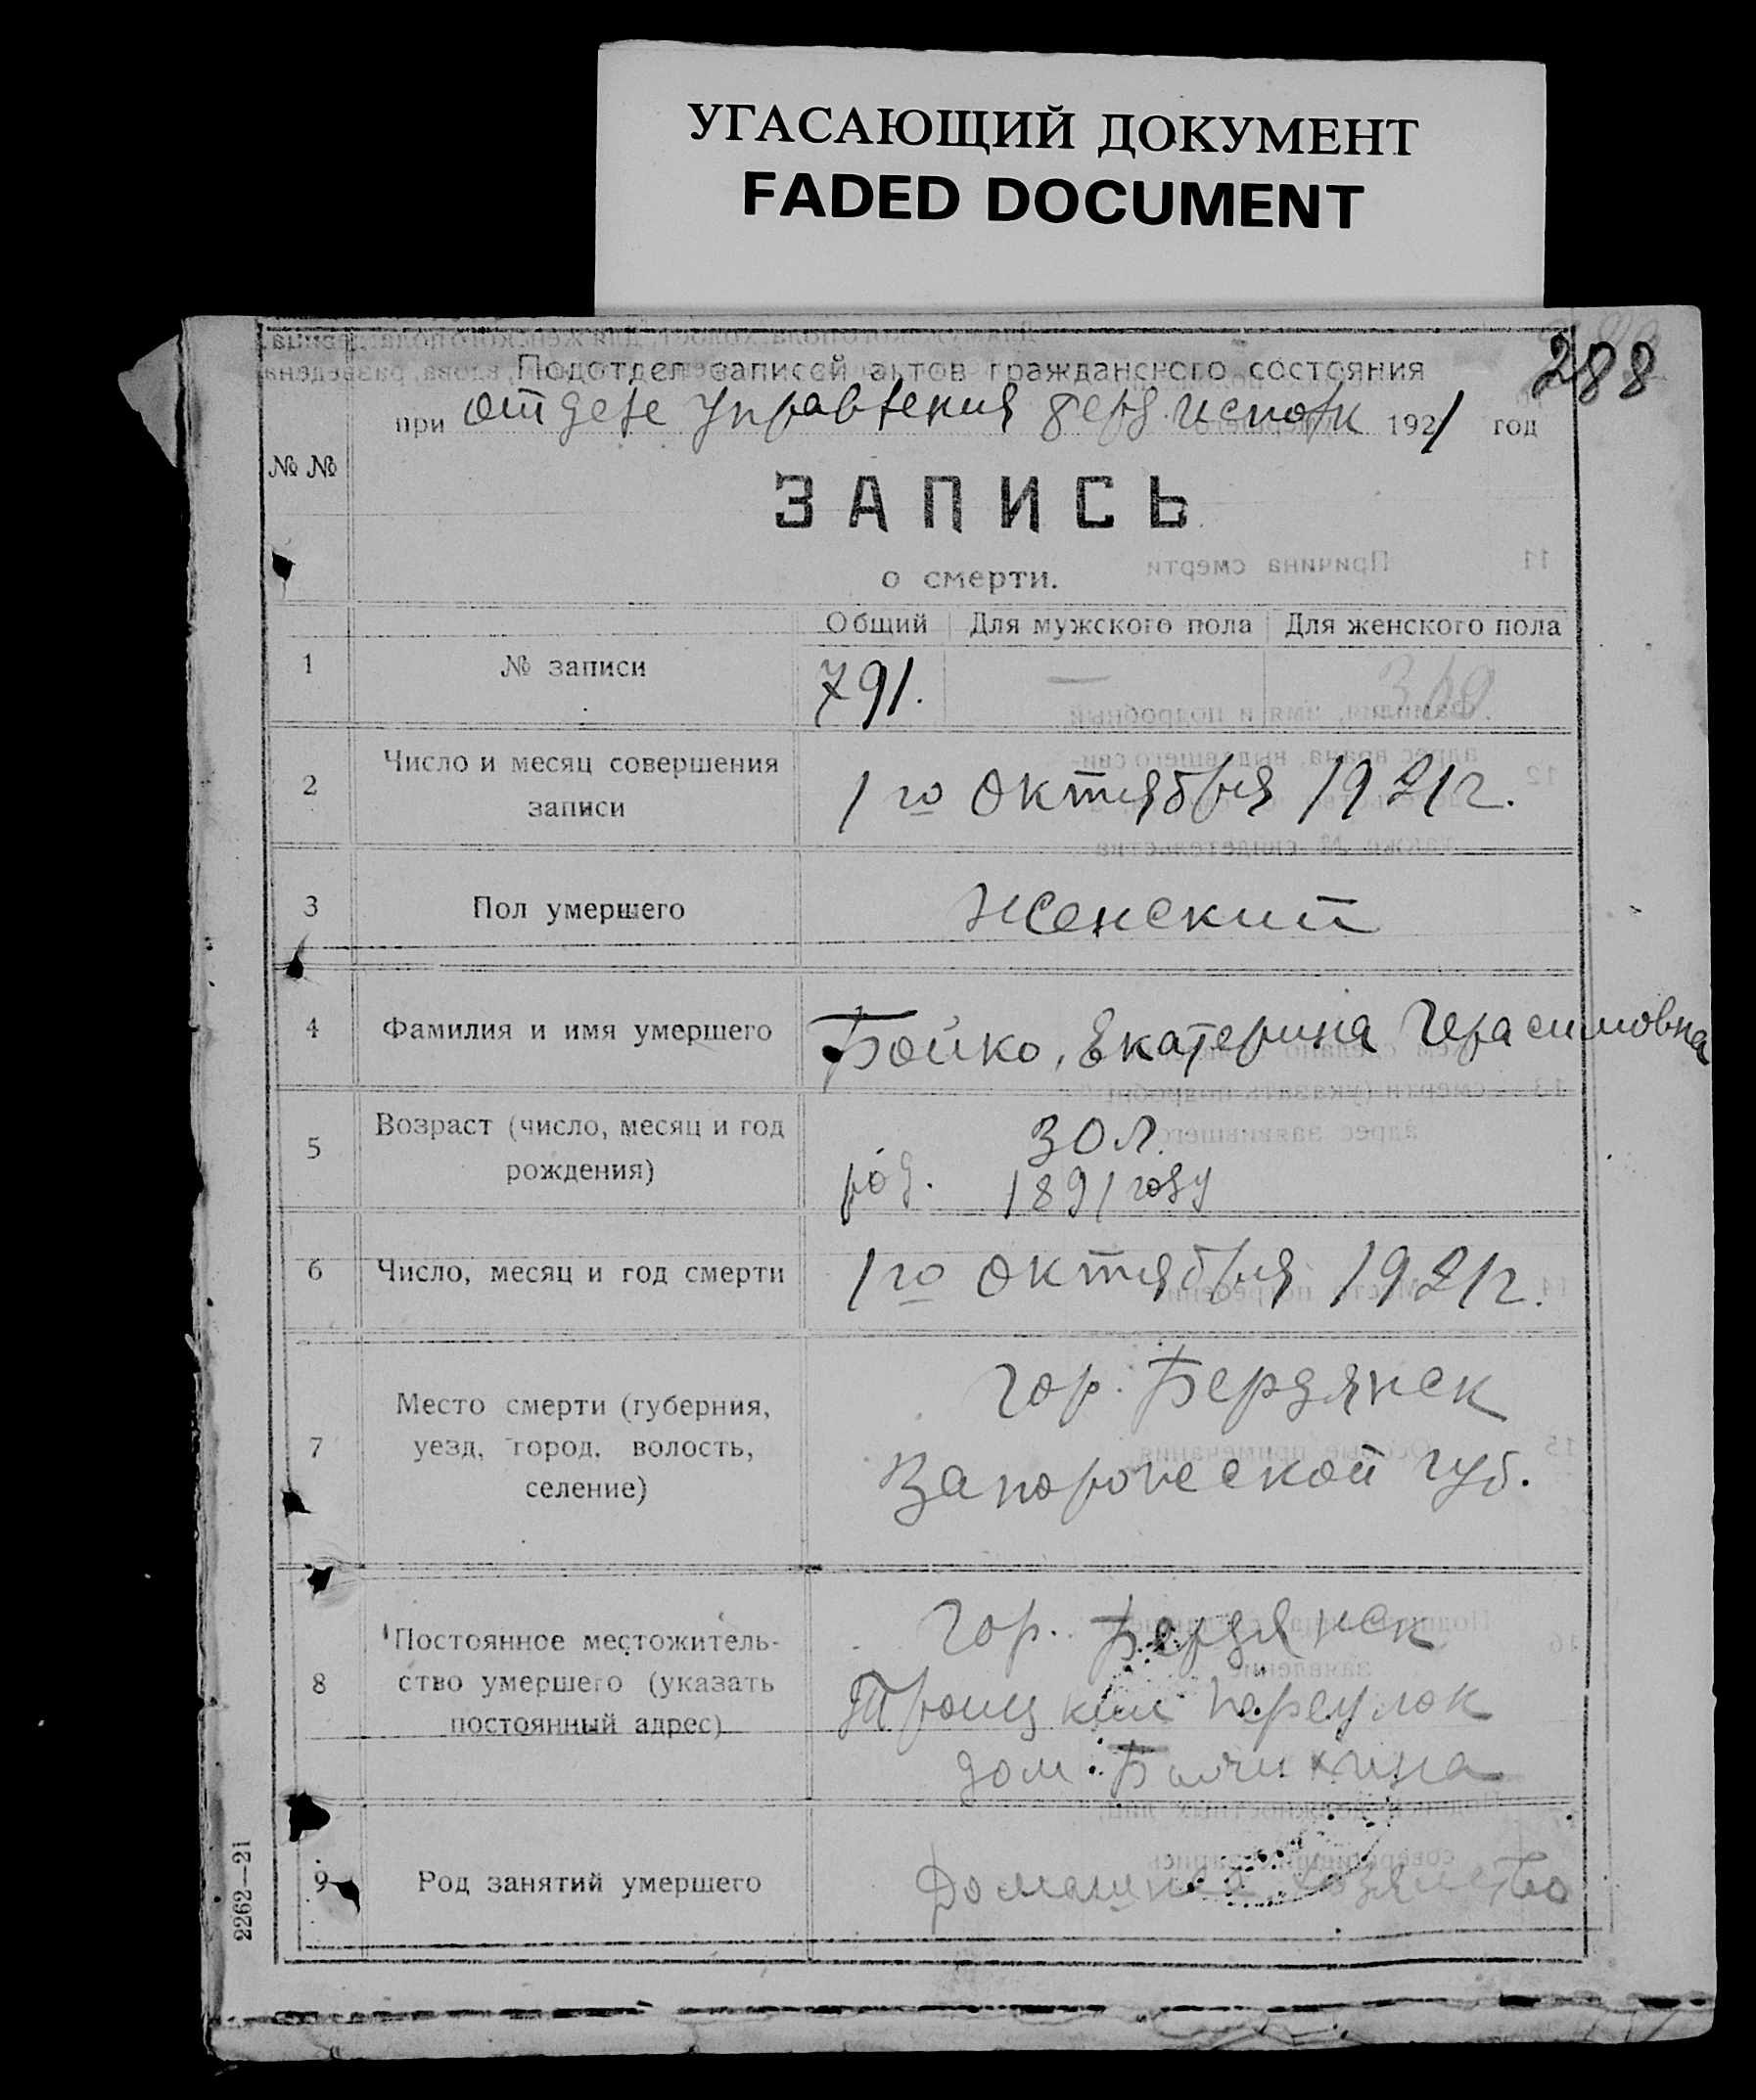 УГАСАЮЩИЙ ДОКУМЕНТ
FADED DOCUMENT
288
Подотдел записей актов гражданского состояния
при отделе управления берд. исполк 1921 год
№ №
ЗАПИСЬ
о смерти.
Общий Для мужского пола Для женского пола
1 № записи 791. —
2 Число и месяц совершения
записи
1го октября 1921г.
3 Пол умершего Женский
4 Фамилия и имя умершего Бойко, Екатерина Герасимовна
5 Возраст (число, месяц и год
рождения)
30 л.
род. 1891 году
6 Число, месяц и год смерти 1го октября 1921г.
7 Место смерти (губерния,
уезд, город, волость,
селение)
Гор. Бердянск
Запорожской губ.
8 Постоянное местожитель-
ство умершего (указать
постоянный адрес)
Гор. Бердянск
Троицкий переулок
дом
9 Род занятий умершего Домашнее хозяйство
2262—21